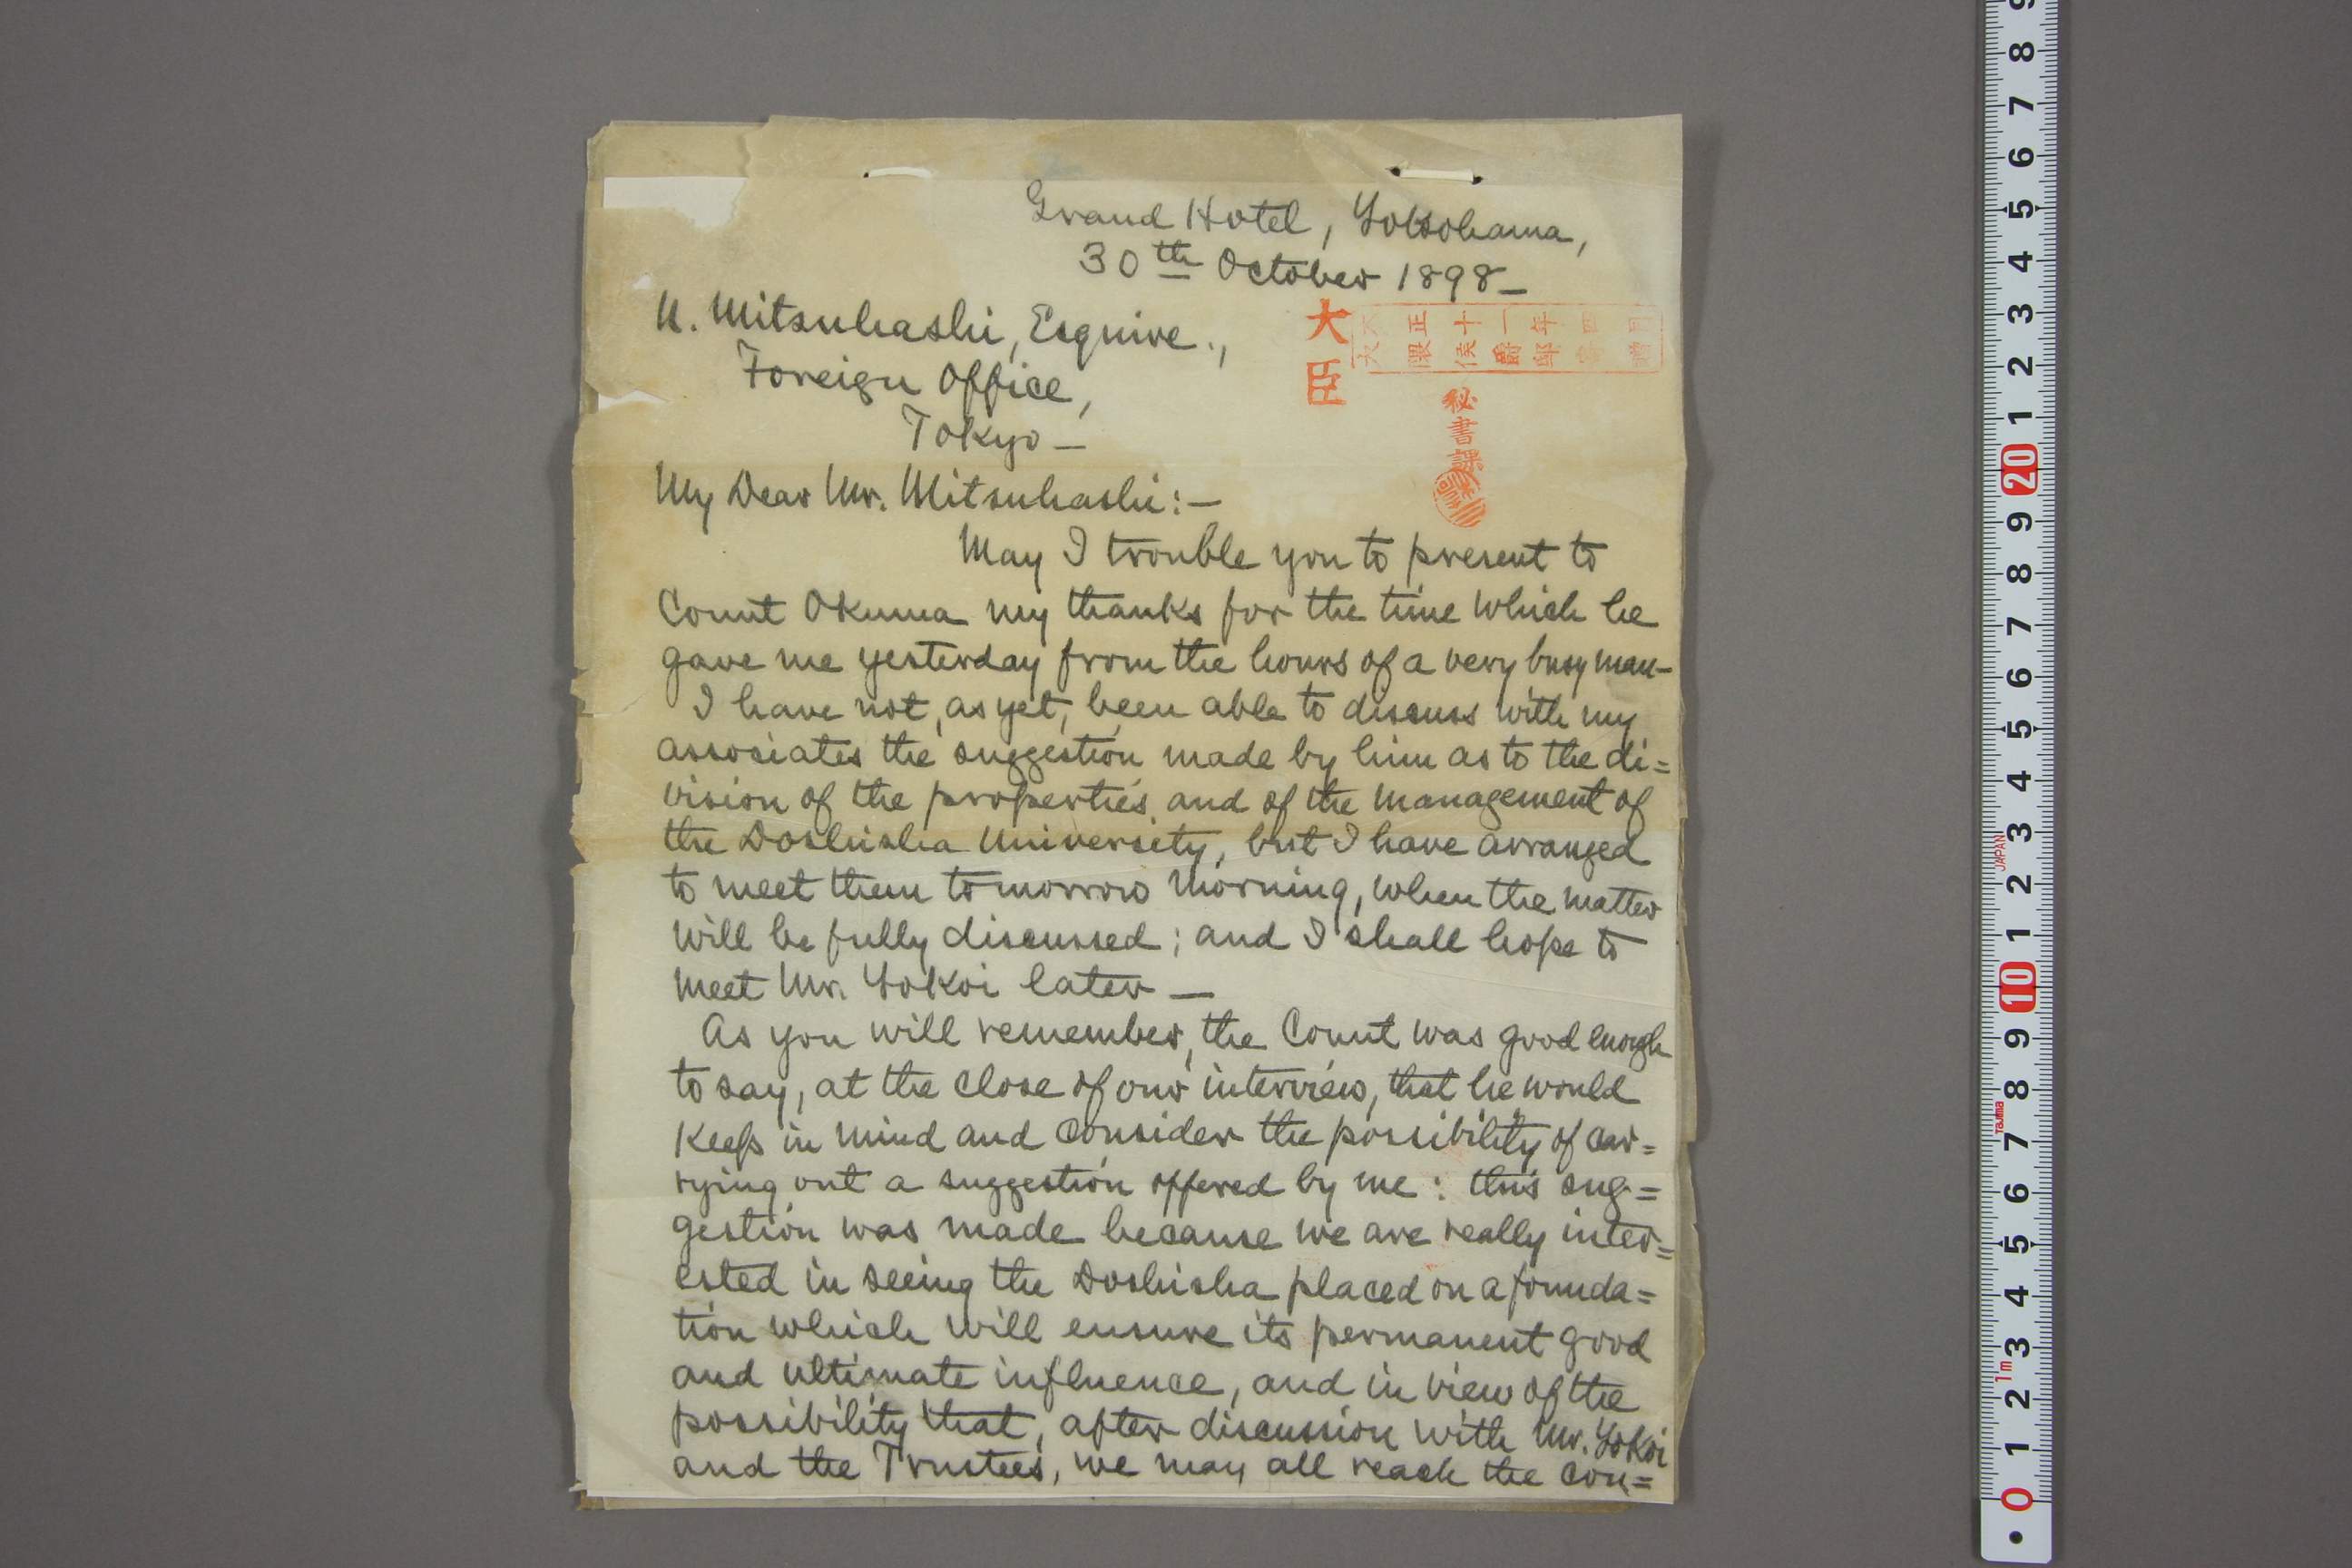 Grand Hotel, Yokohama,
30th October 1898—
N. Mitsuhashi, Esquire.,
Foreign Office,
Tokyo—
大臣
大正十一年四月
大隈侯爵邸寄贈
秘書課
My Dear Mr. Mitsuhashi:—
May I trouble you to present to
Count Okuma my thanks for the time which he
gave me yesterday from the hours of a very busy man—
I have not, as yet, been able to discuss with my
associates the suggestion made by him as to the di=
vision of the properties and of the management of
the Doshisha University, but I have arranged
to meet them tomorrow morning, when the matter
will be fully discussed; and I shall hope to
meet Mr. Yokoi later—
As you will remember, the Count was good enough
to say, at the close of our interview, that he would
keep in mind and consider the possibility of car=
rying out a suggestion offered by me: this sug=
gestion was made because we are really inter=
ested in seeing the Doshisha placed on a founda=
tion which will ensure its permanent good
and ultimate influence, and in view of the
possibility that, after discussion with Mr. Yokoi
and the Trustees, we may all reach the con=
9
8
7
6
5
4
3
2
1
20
9
8
7
6
5
4
3
JAPAN
2
1
10
9
8
Tajima
7
6
5
4
3
1m
2
1
0